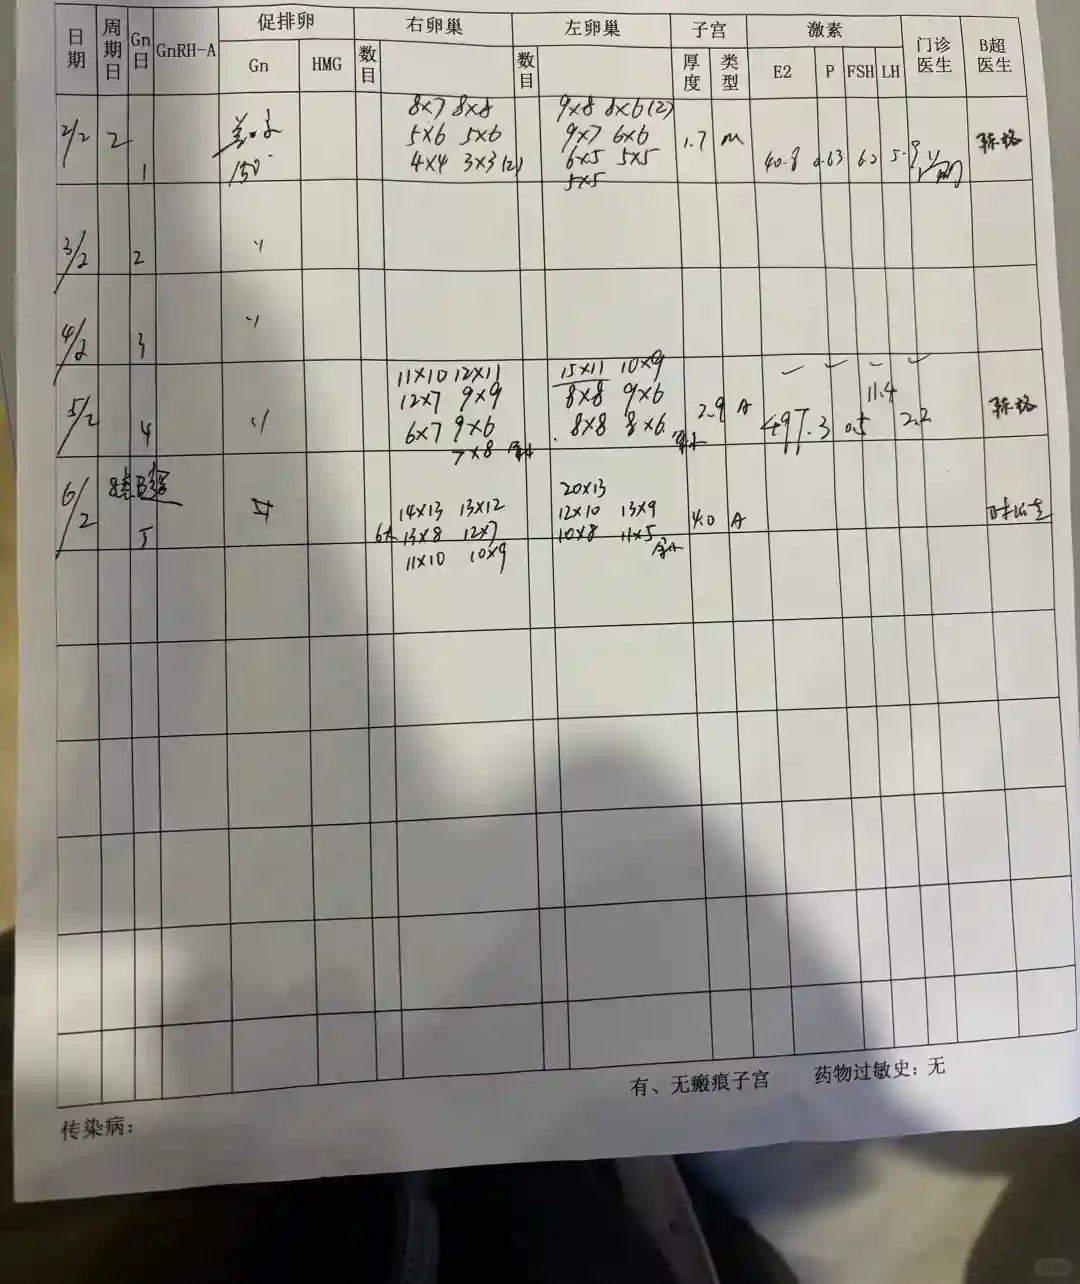 日期 周期日 Gn日 GnRH-A 促排卵 右卵巢 左卵巢 子宫 激素 门诊医生 B超医生
Gn HMG 数目 数目 厚度 类型 E2 P FSH LH
8×7 8×8 9×8 8×6(2)
2/2 2 5×6 5×6 9×7 6×6 1.7 M
1 150 4×4 3×3(2) 6×5 5×5 40.8 0.63 6.2 5.9
5×5
3/2 2 〃
4/2 3 〃
11×10 12×11 15×11 10×9
5/2 12×7 9×9 8×8 9×6 2.9 A 11.4
4 〃 6×7 9×6 8×8 8×6 497.3 0.5 2.2
7×8 余小
6/2 20×13
14×13 13×12 12×10 13×9 4.0 A
5 6个 13×8 12×7 10×8 11×5 余小
11×10 10×9
有、无瘢痕子宫 药物过敏史：无
传染病：